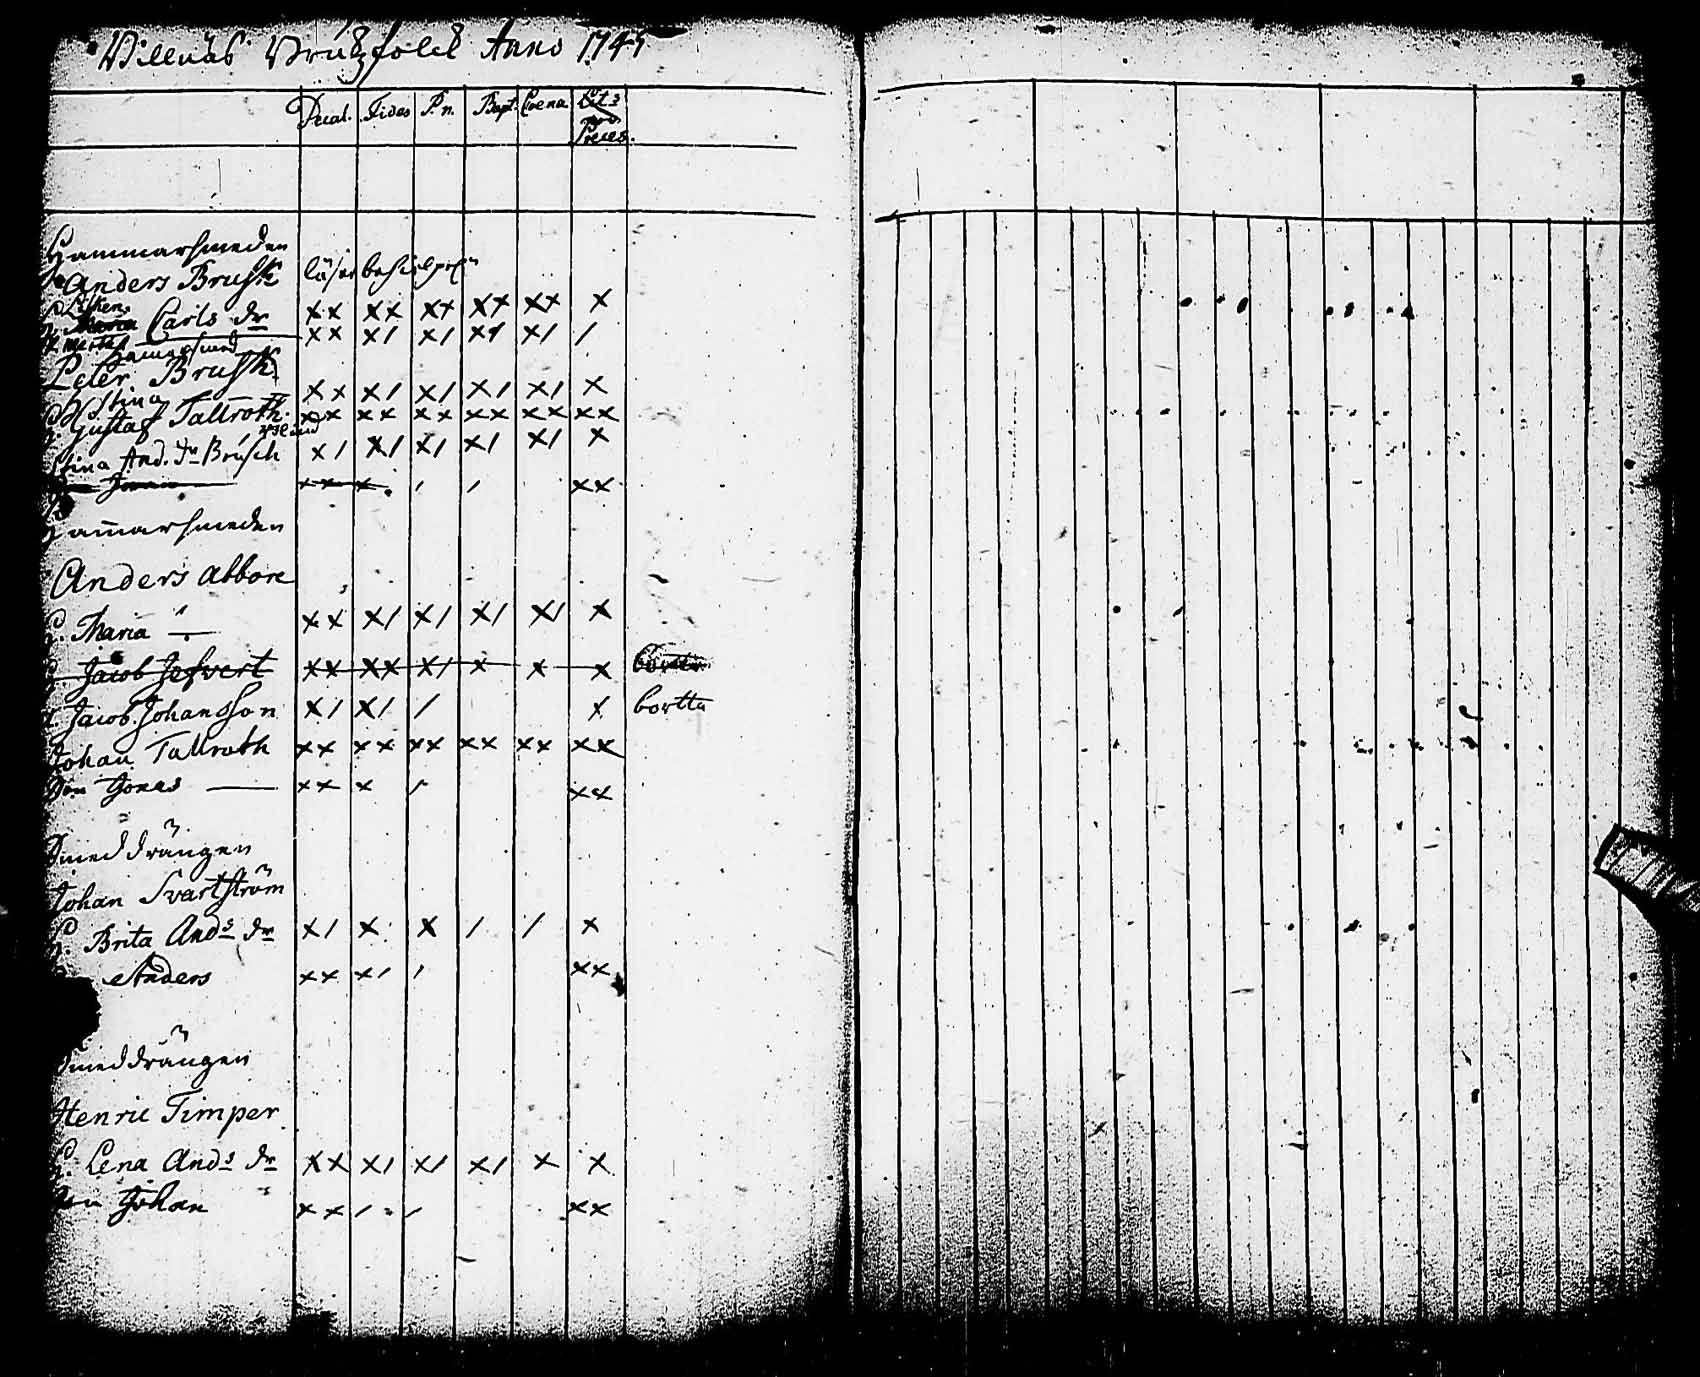 Villnäs Brukzfolck Anno 1745
Decal. Fides P. n. Bapt. Coena
Preces.
Hammarsmeden
Anders Brusk läser
H. Maria Carls dr xx xx xx xx xx x
xx x/ x/ x/ x/ /
Hamarsmed
Peter Brusk
H. Stina xx x/ x/ x/ x/ x
Gustaf Tallroth xx xx xx xx xx xx
Stina And. dr Brusck x/ x/ x/ x/ x/ x
xx x / / xx
Hamarsmeden
Anders Abbore
H. Maria xx x/ x/ x/ x/ x
Jacob Jefvert xx xx x/ x x x
Jacob Johansson x/ x/ / x bortta
Johan Tallroth xx xx xx xx xx xx
Son Jonas xx x / xx
Smeddrängen
Johan Svartström
H. Brita Ands dr x/ x x / / x
Anders xx x/ / xx
Smeddrängen
Henric Timper
H. Lena Ands dr xx x/ x/ x/ x x
Son Johan xx / / xx